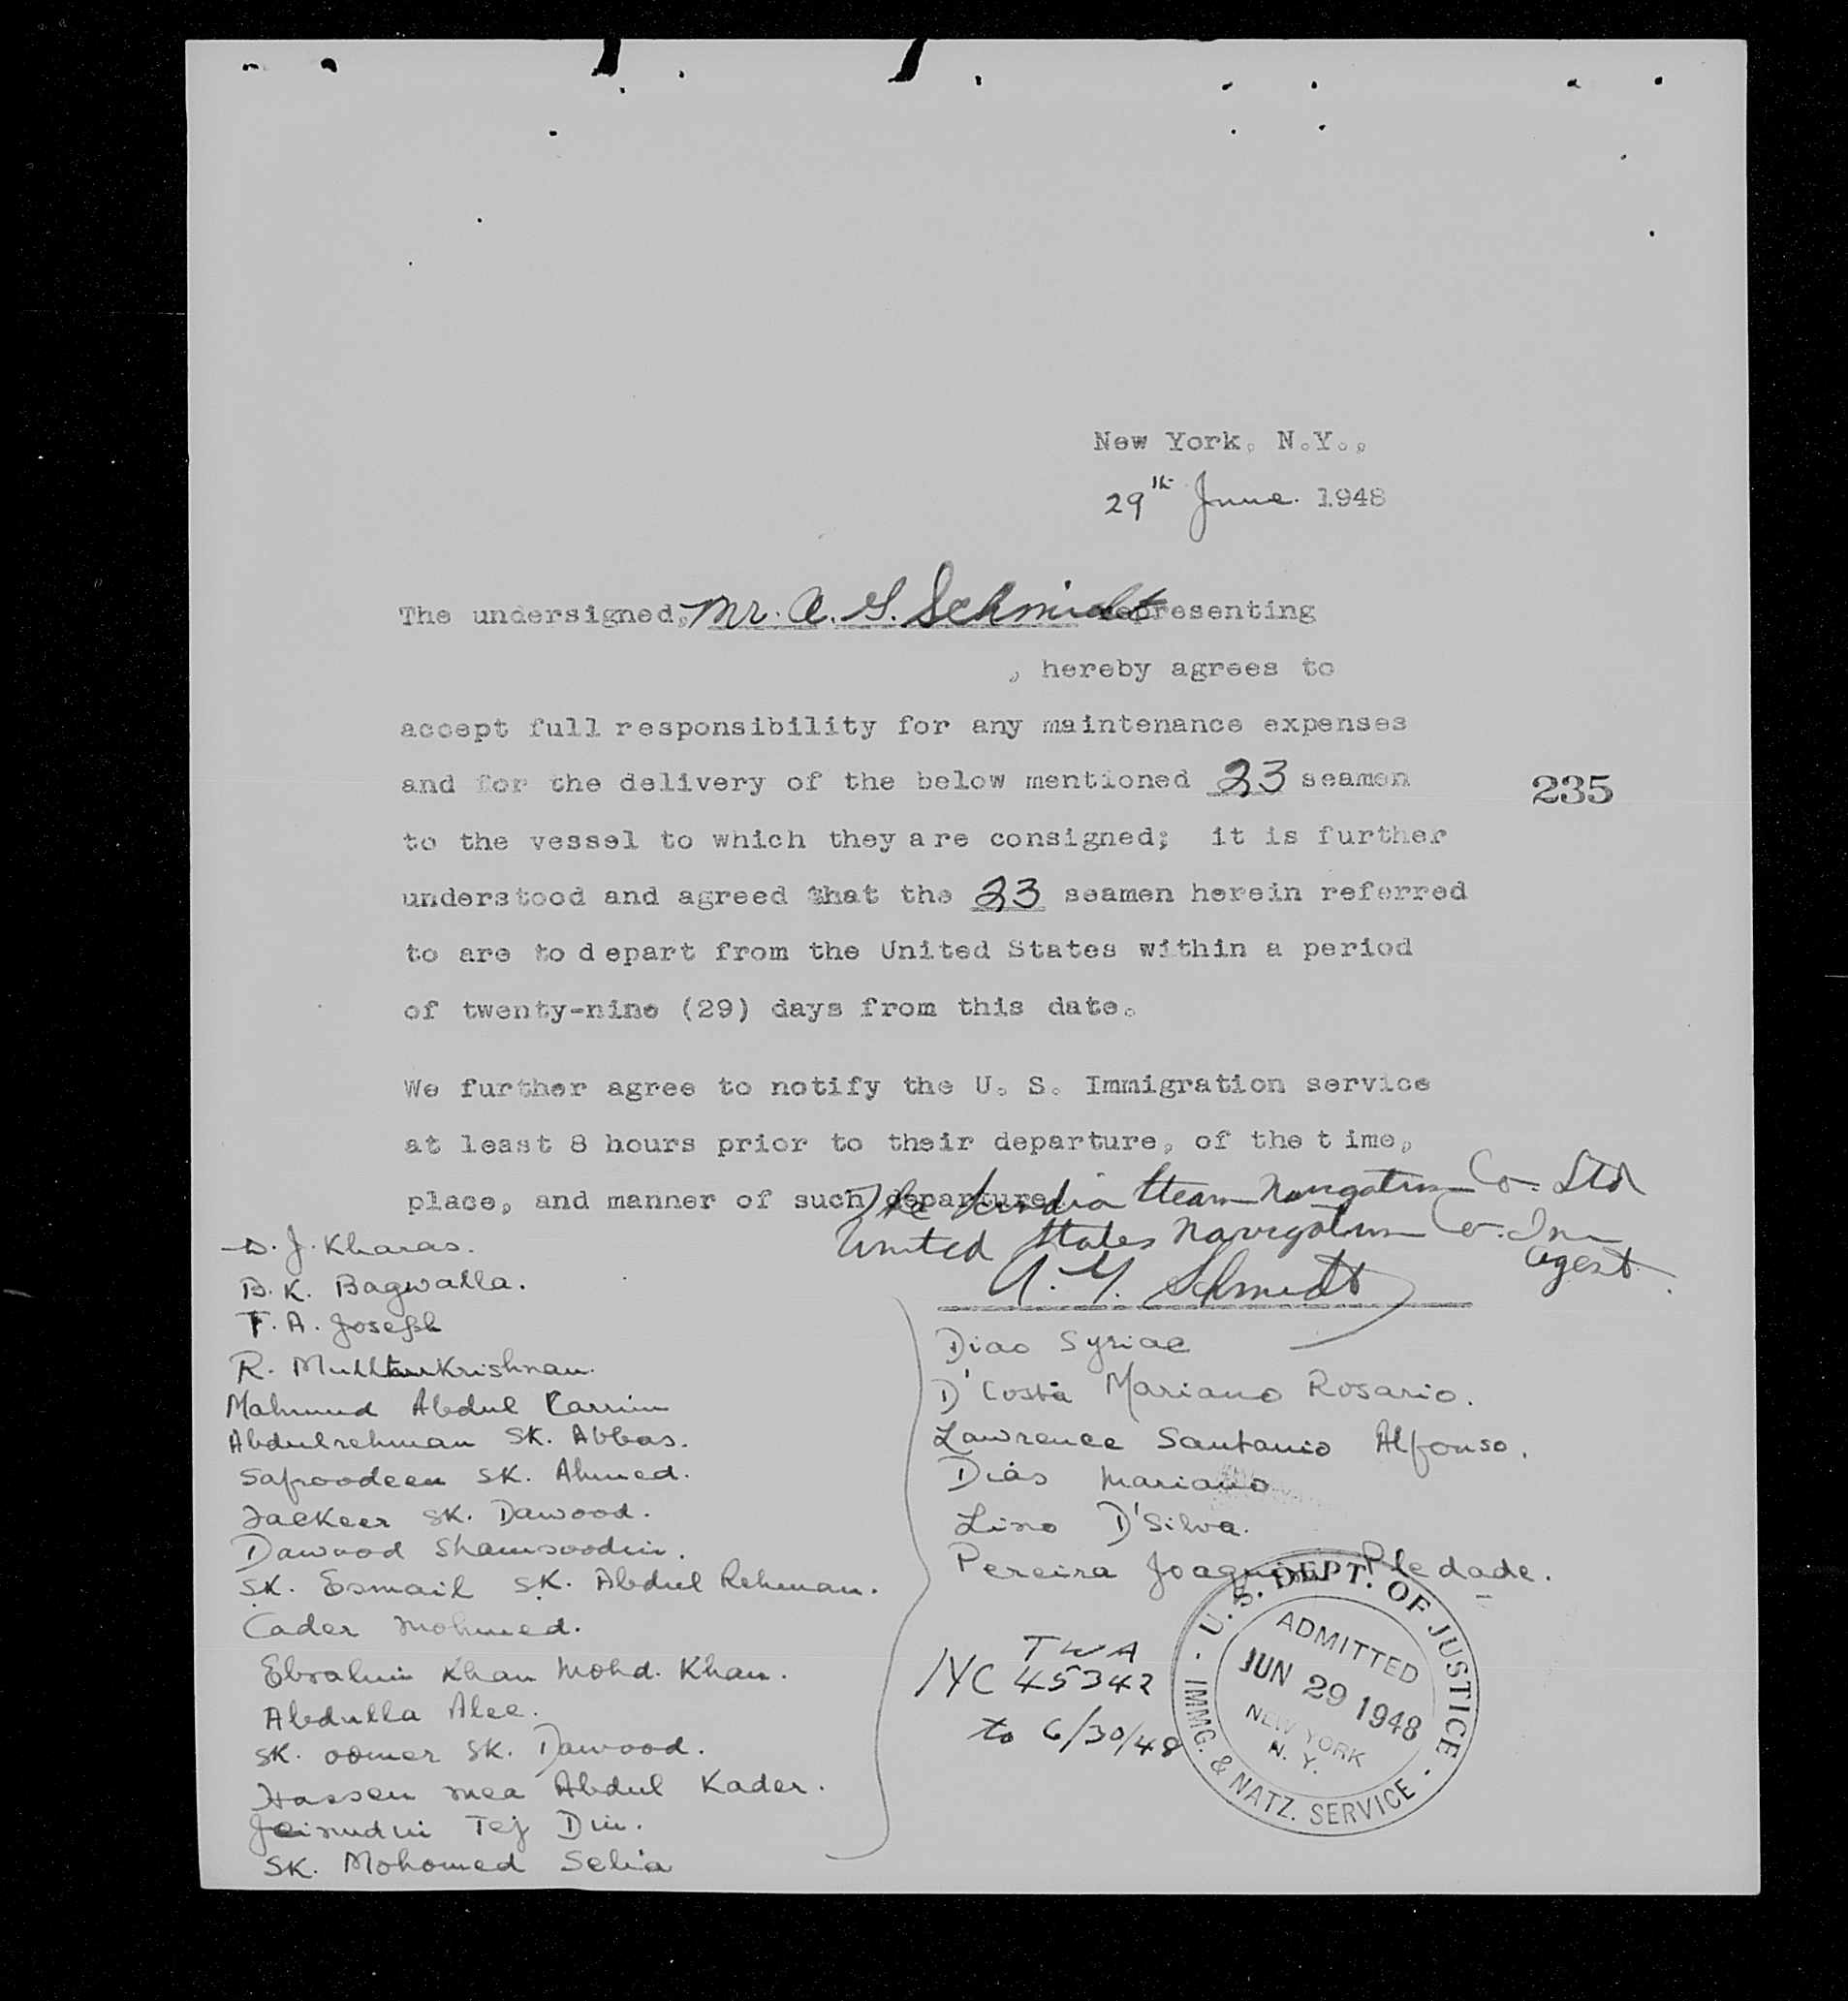 New York, N.Y.,
29th June. 1948
The undersigned, Mr. A. G. Schmidt representing
, hereby agrees to
accept full responsibility for any maintenance expenses
and for the delivery of the below mentioned 23 seamen
to the vessel to which they are consigned; it is further
understood and agreed that the 23 seamen herein referred
to are to depart from the United States within a period
of twenty-nine (29) days from this date.
235
We further agree to notify the U. S. Immigration service
at least 8 hours prior to their departure, of the time,
place, and manner of such departure.
The Steam Navigation Co. Ltd
United States Navigation Co. Inc
Agent
A. G. Schmidt
D. J. Kharas.
B. K. Bagwalla.
T. A. Joseph
R. MuttuKrishnan.
Mahmud Abdul Karrim
Abdulrehman SK. Abbas.
Safoodeen SK. Ahmed.
Jackeer SK. Dawood.
Dawood Shamsoodin.
SK. Esmail SK. Abdul Rehman.
Cader Mohmed.
Ebrahim Khan Mohd. Khan.
Abdulla Alee.
SK. oomer SK. Dawood.
Hassen mea Abdul Kader.
Jeinudin Tej Din.
SK. Mohomed Selia
Dias Syriac
D'Costa Mariano Rosario.
Lawrence Santanio Alfonso.
Dias Mariano
Lino D'Silva.
Pereira Joaquim Piedade.
TWA
NC 45342
to 6/30/48
U. S. DEPT. OF JUSTICE - IMMG. & NATZ. SERVICE -
ADMITTED
JUN 29 1948
NEW YORK
N. Y.